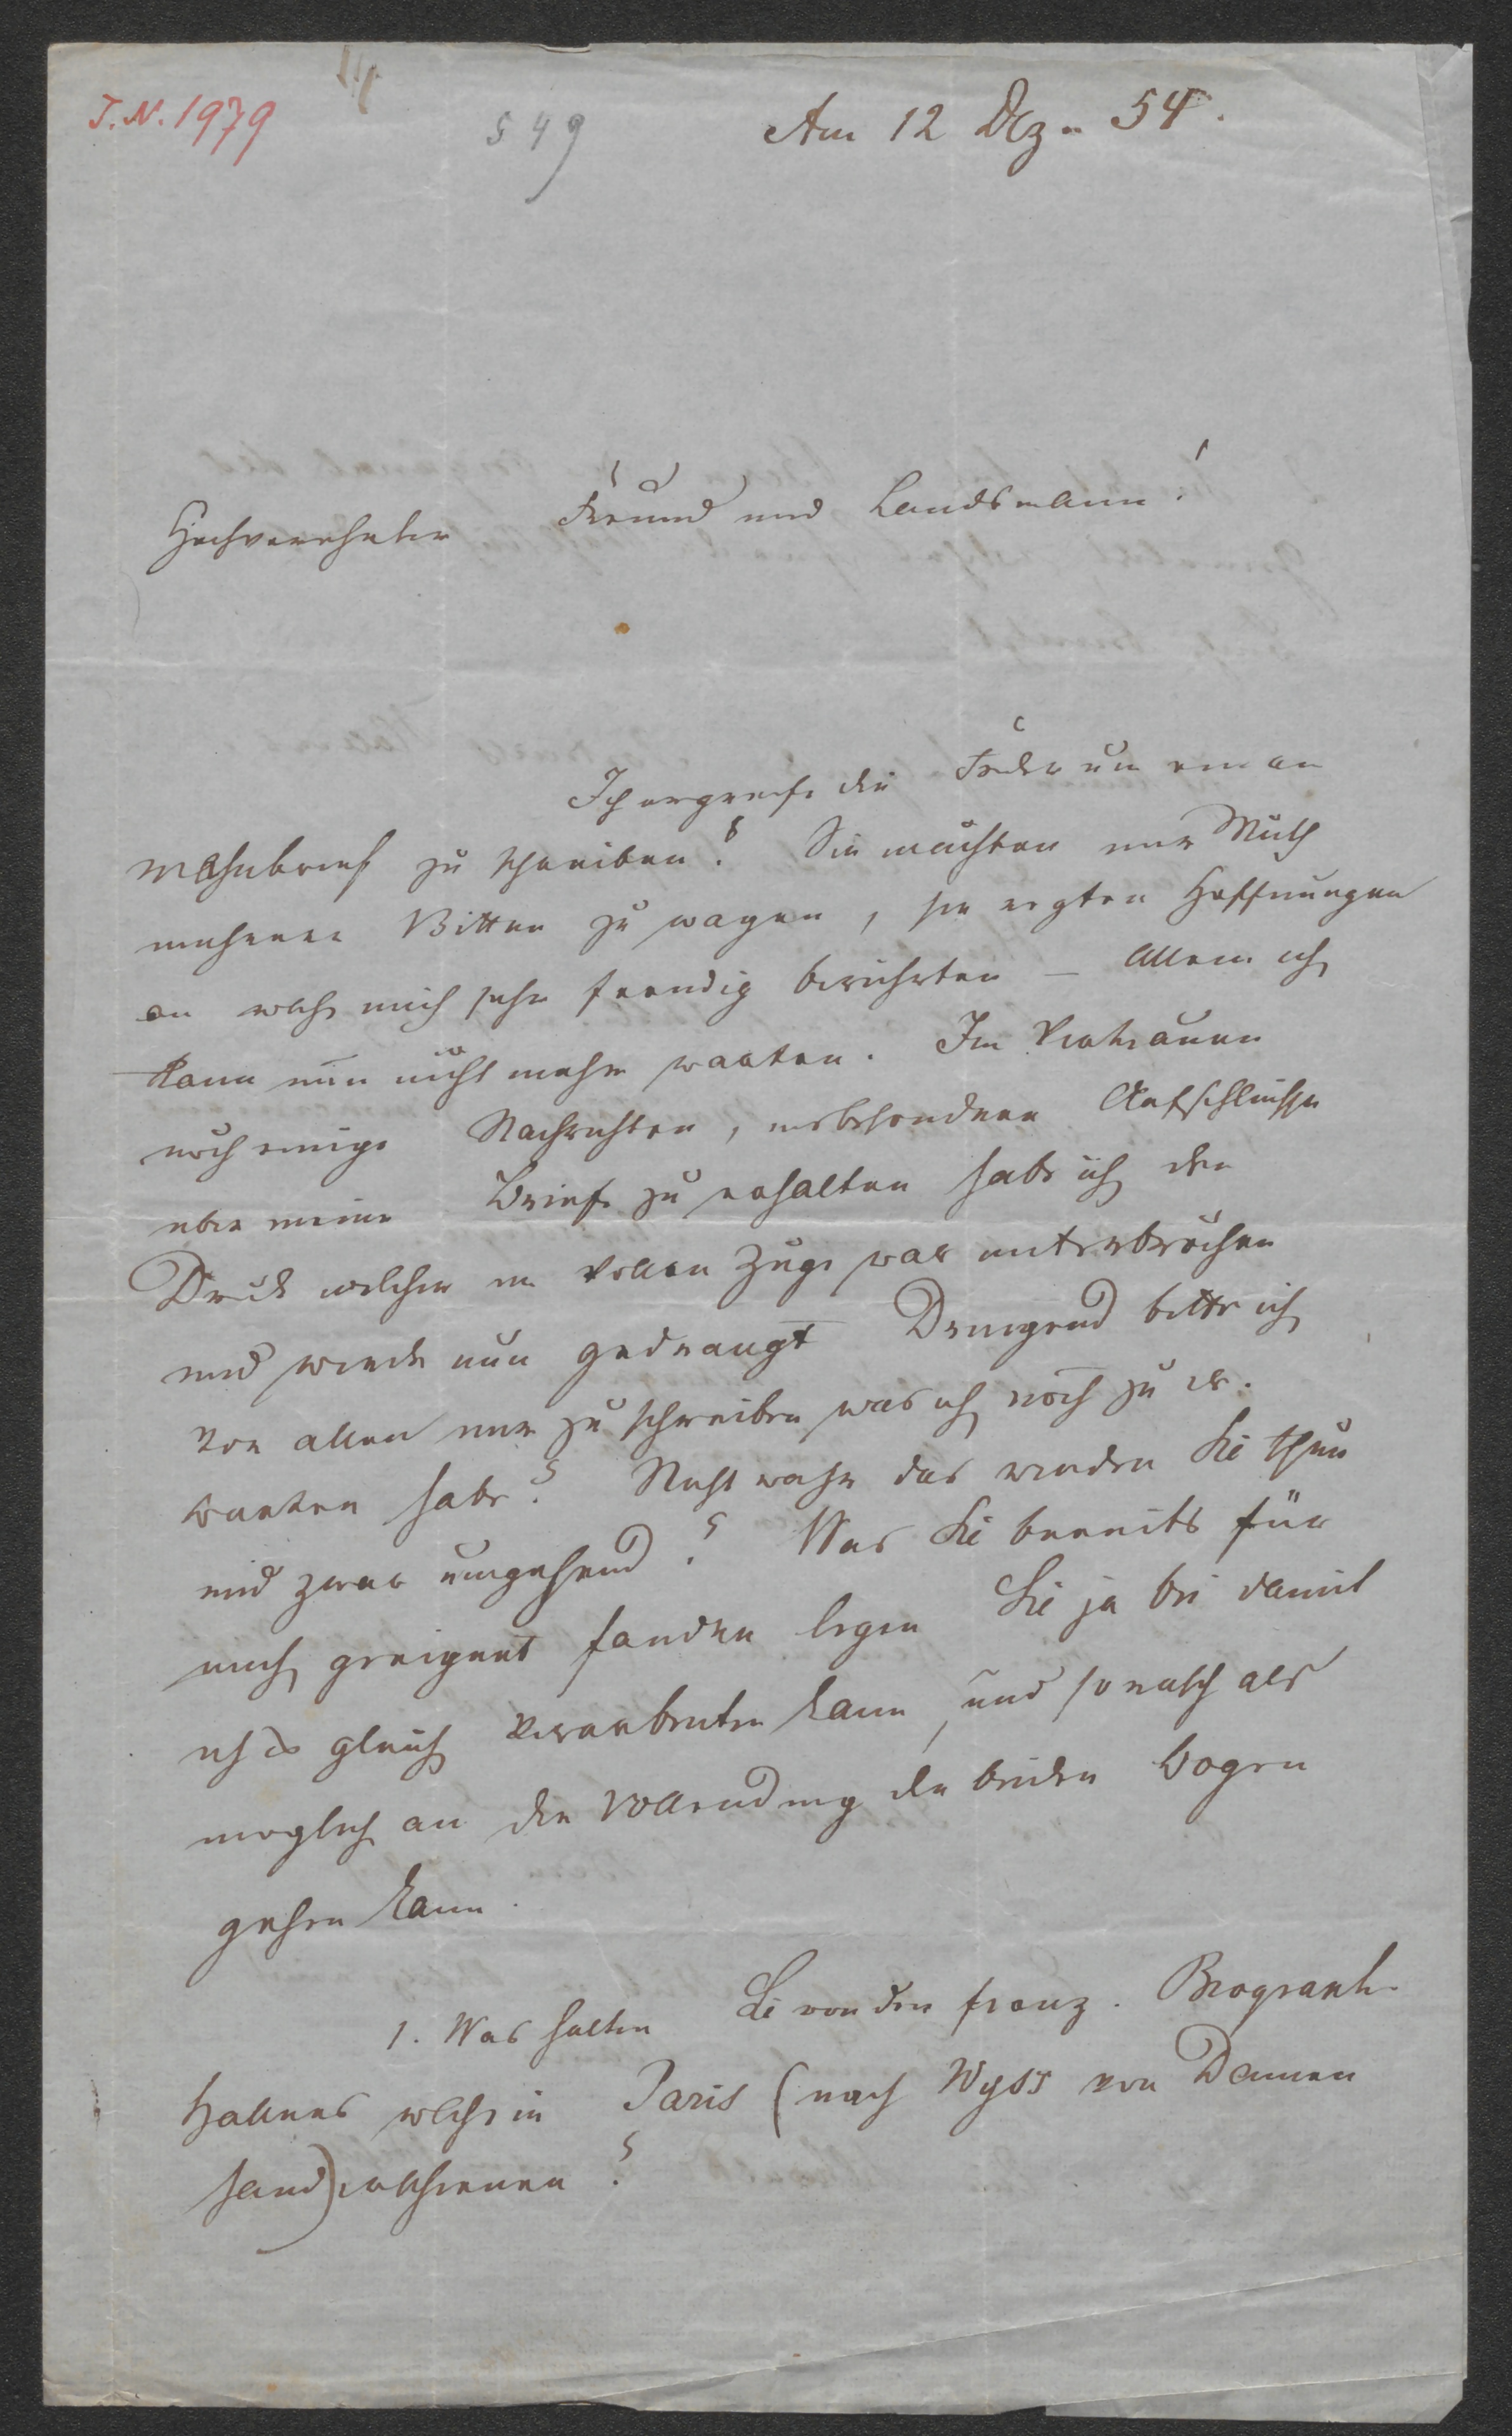 J. N. 1979
549
Am 12 Dez. 54.
Hochverehrter Freund und Landsmann!
Ich ergreife die Feder um einen
Mahnbrief zu schreiben! Sie machten mir Muth
mehrere Bitten zu wagen, sie regten Hoffnungen
an welche mich sehr freudig berührten – Allein ich
kann nun nicht mehr warten. Im Vertrauen
noch einige Nachrichten, insbesondere Aufschlüsse
über meine Briefe zu erhalten habe ich den
Druck welcher im vollen Zuge war unterbrochen
und werde nun gedrängt Dringend bitte ich
vor allem mir zu schreiben was ich noch zu er-
warten habe? Nicht wahr das werden Sie thun
und zwar umgehend? Was Sie bereits für
mich geeignet fanden legen Sie ja bei damit
ich es gleich verarbeiten kann, und so rasch als
möglich an die Vollendung der beiden Bogen
gehen kann.
1. Was halten Sie von der franz. Biograph.
Hallers welche in Paris (nach Wyss von Damen
hand) erschienen?